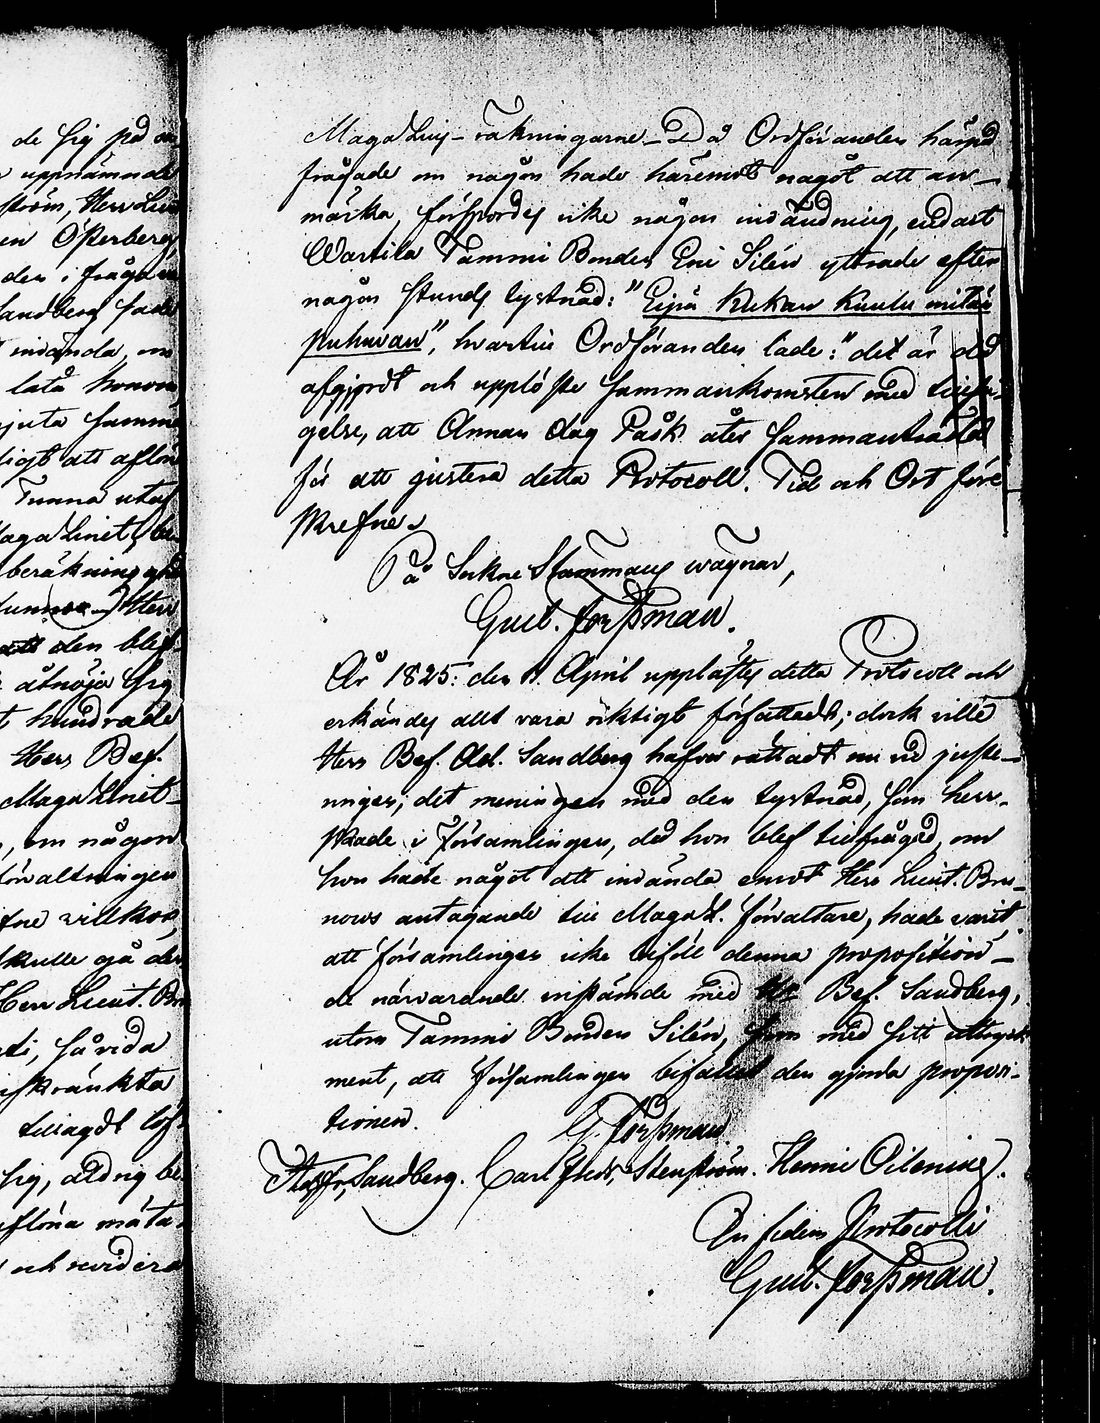 de sig på
uppnämnde
ström, Herr
en Österberg
den i fråga
Sandberg
invända, om
låta honom
njuta
ligt att
Tunna utaf
beräkning
Herr
den blef
åtnöja sig
hundrade
Herr Bef.
, om någon
förvaltningen
villkor
skulle gå
Herr Lieut.
, såvida
inskränkta
sig, aldrig
måta
och
Magazins-räkningarne – Då Ordföranden härpå
frågade om någon hade häremot något att an-
märka, förspordes icke någon invändning, endast
Wartila Tammi Bonden Eric Silén yttrade efter
någon stunds tystnad: "Eipä Kukan Kuulu mitän
puhuvan", hvartill Ordföranden lade: "det är då
afgjordt och upplöste sammankomsten med tillsä-
gelse, att Annan dag Påsk åter sammanträda
för att justera detta Protocoll. Tid och Ort före
skrefne.
På Sockne Stämmans wägnar,
Gust. Forssman.
År 1825: den April upplästes detta Protocoll och
erkändes allt vara riktigt författadt; dock ville
Herr Bef. Ad. Sandberg hafva rättadt nu vid juste-
ningen; det meningen med den tystnad, som herr-
skade i Församlingen, då hon blef tillfrågad, om
hon hade något att invända emot Herr Lieut. Bru-
nows antagande till Magaz. förvaltare, hade varit
att församlingen icke biföll denna proposition –
de närvarande instämde med Hr Bef. Sandberg,
utom Tammi Bonden Silén, som med sitt
ment, att församlingen bifallit den gjorda proposi-
tionen.
G. Forssman
Sandberg. Carl Fredr. Stenström. Henric
In fidem Protocolli
Gust. Forssman.